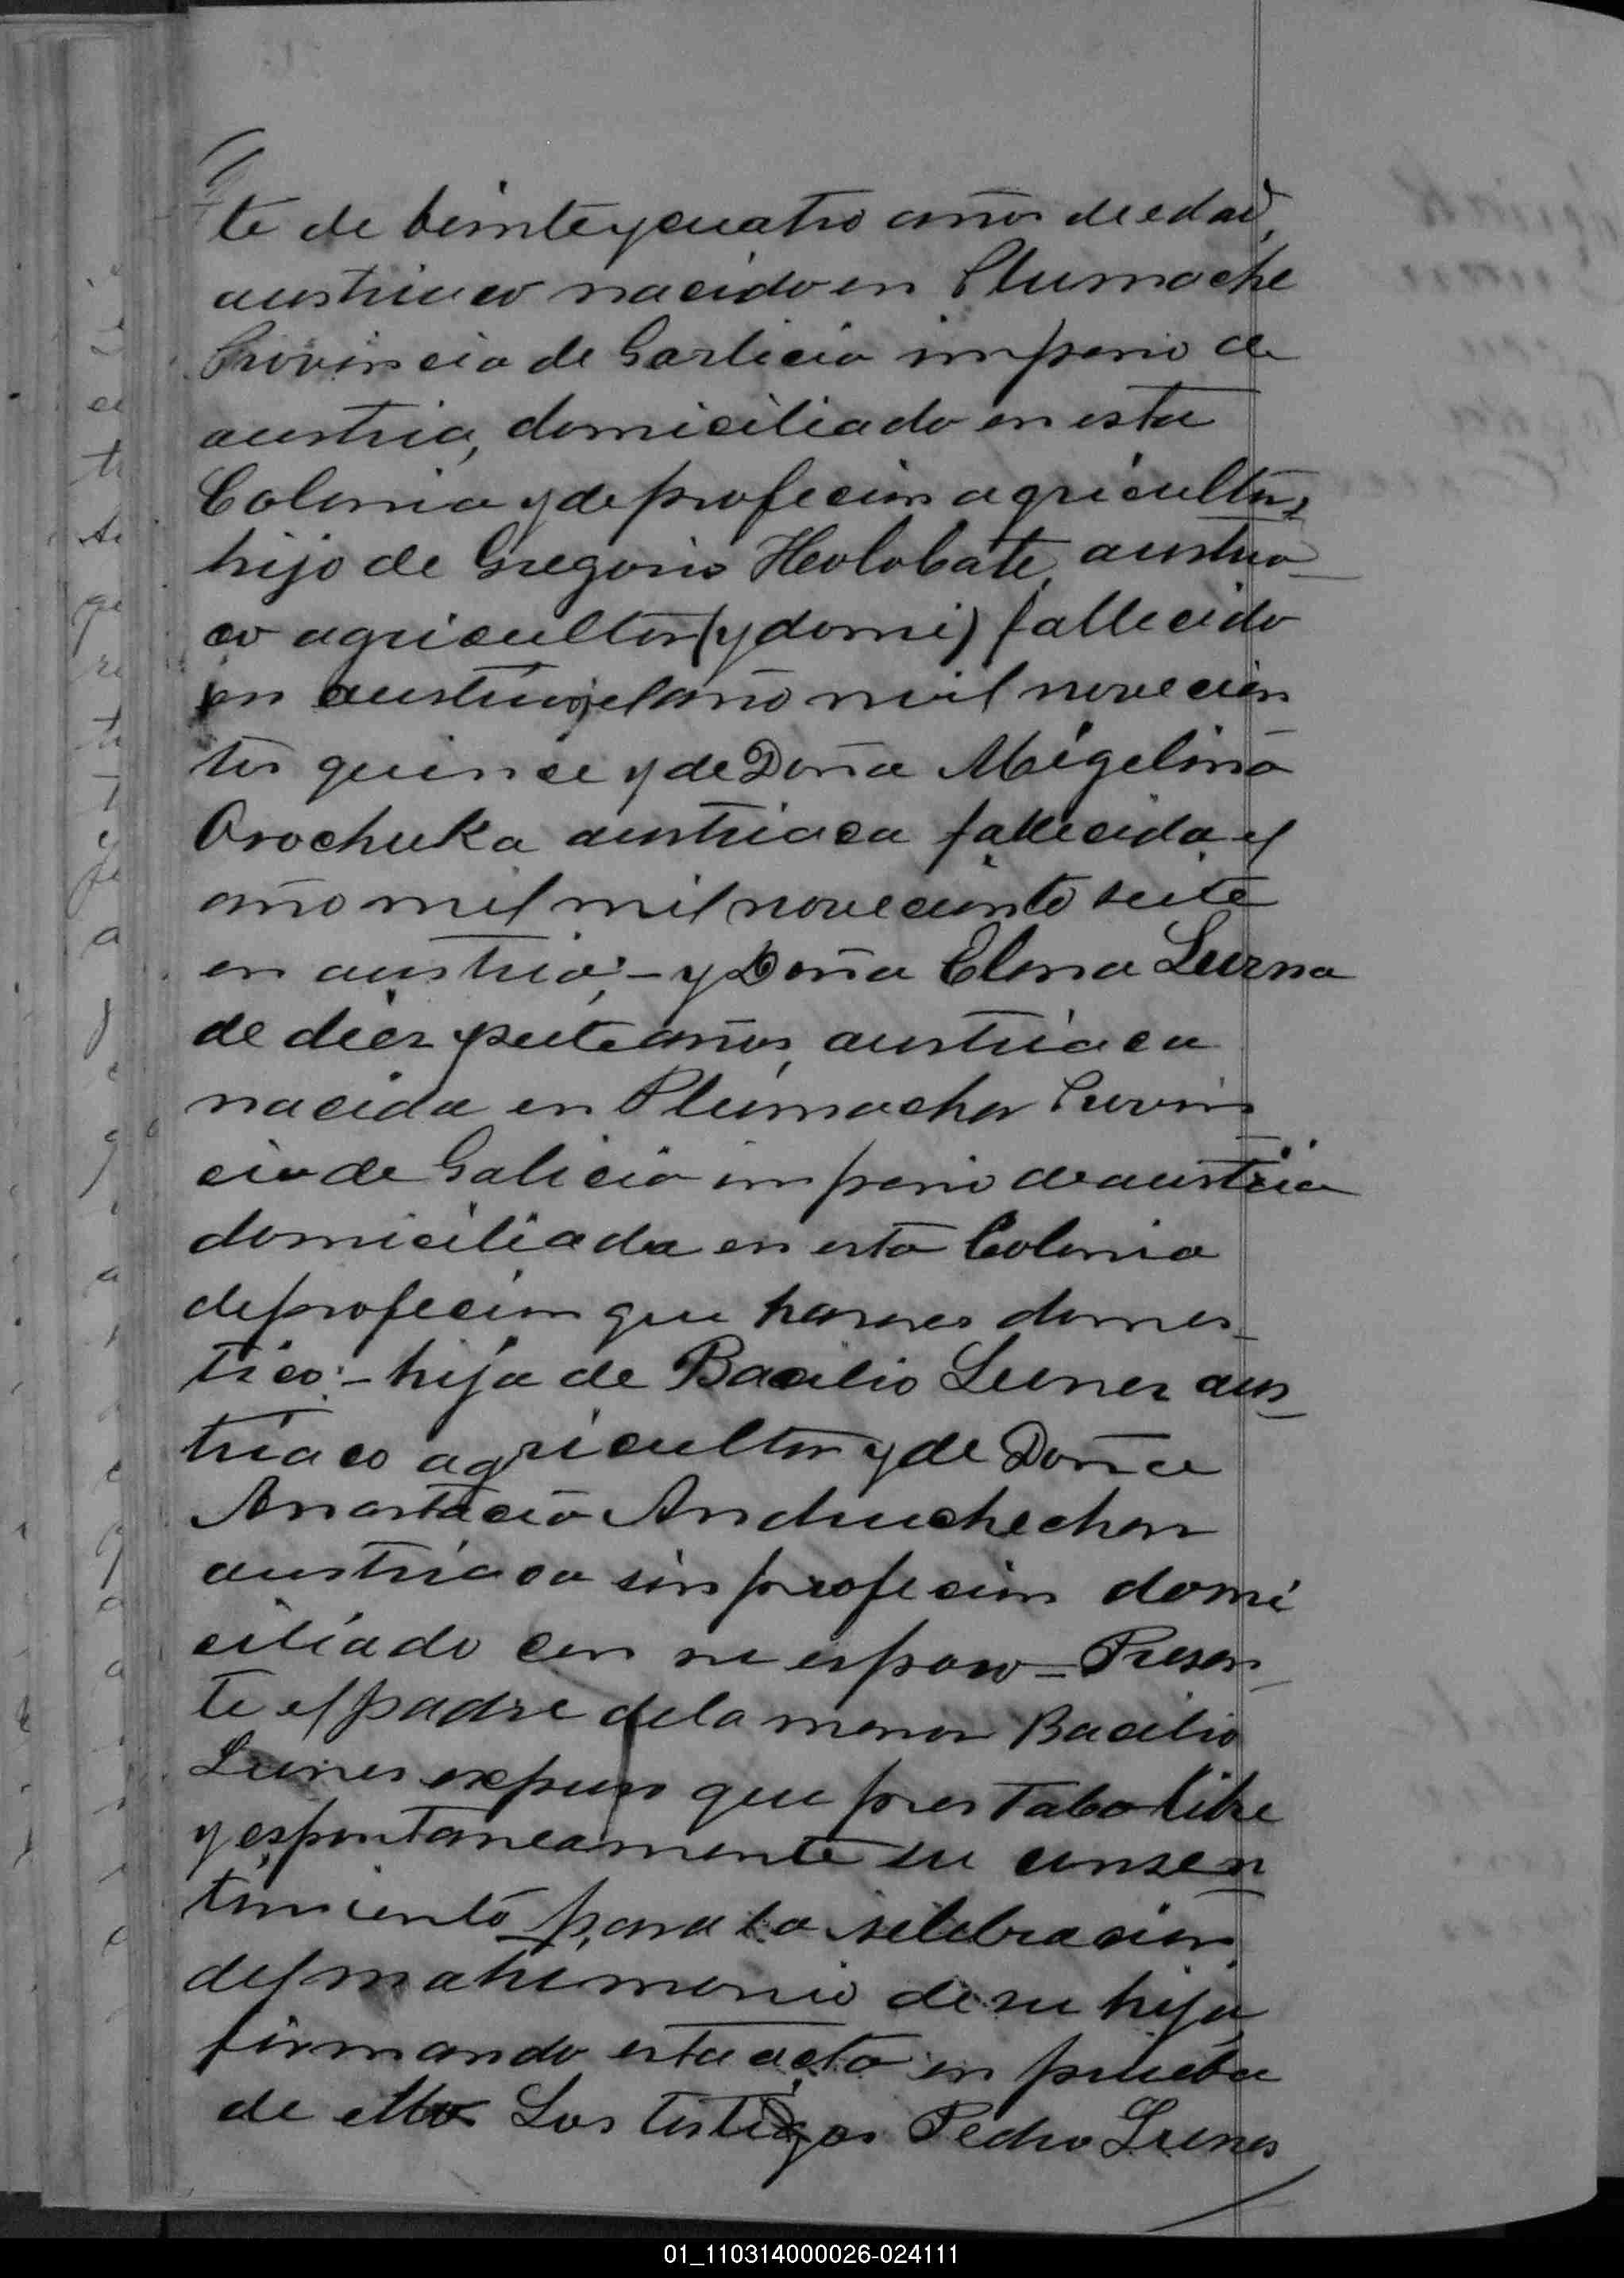 te de beinteycuatro años de edad,
austriaco nacido en Clumache
Provincia de Garlicia imperio de
austria, domiciliado en esta
Colonia y de profecion agricultor,
hijo de Gregorio Holobate, austria-
co agricultor (y domi) fallecido
en austria, el año mil novecien
tos quince y de Doña Migelina
Orochuka austriaca fallecida el
año mil mil noveciento seite
en austria;- y Doña Elena Lurna
de diez y seite años, austriaca
nacida en Plumacha Provin
cia de Galicia imperio de austria
domiciliada en esta Colonia
de profecion que haseres domes-
tico:- hija de Bacilio Lunes aus-
triaco agricultor y de Doña
Anastacia Andruchechen
austriaca sin profecion domi
ciliado con su esposo = Presen-
te el padre de la menor Bacilio
Lunes expuso que prestaba libre
y espontaneamente su consen
timiento para la selebracion
del matrimonio de su hija,
firmando esta acta en prueba
de ello Los testigos Pedro Lunes
01_110314000026-024111